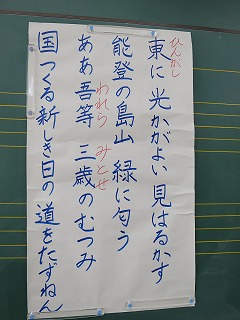 ひんがし
東に 光かがよい 見はるかす
能登の島山 緑に匂う
われら みとせ
ああ吾等 三歳のむつみ
国つくる新しき日の 道をたずねん